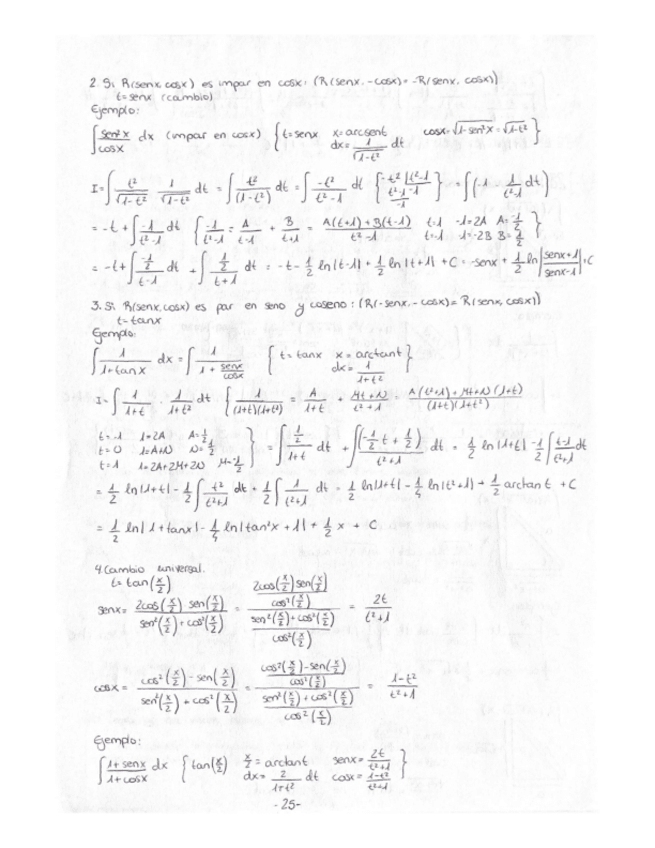 2. Si R(senx, cosx) es impar en cosx: (R(senx, -cosx) = -R(senx, cosx))
t=senx (cambio)
Ejemplo:
∫ sen²x/cosx dx (impar en cosx) { t=senx x=arcsent dx= 1/√(1-t²) dt cosx=√(1-sen²x)=√(1-t²) }
I=∫ t²/√(1-t²) 1/√(1-t²) dt = ∫ t²/(1-t²) dt = ∫ -t²/(t²-1) dt { -t² |t²-1 t²-1 -1 -1 } = ∫(-1 1/(t²-1) dt)
= -t + ∫ -1/(t²-1) dt { -1/(t²-1) = A/(t-1) + B/(t+1) = (A(t+1)+B(t-1))/(t²-1) t=1 -1=2A A=-1/2 t=-1 -1=-2B B=1/2 }
= -t + ∫ (-1/2)/(t-1) dt + ∫ (1/2)/(t+1) dt = -t - 1/2 ln|t-1| + 1/2 ln|t+1| + C = -senx + 1/2 ln|(senx+1)/(senx-1)| + C
3. Si R(senx, cosx) es par en seno y coseno: (R(-senx, -cosx) = R(senx, cosx))
t=tanx
Ejemplo:
∫ 1/(1+tanx) dx = ∫ 1/(1+senx/cosx) { t=tanx x=arctant dx= 1/(1+t²) }
I=∫ 1/(1+t) · 1/(1+t²) dt { 1/((1+t)(1+t²)) = A/(1+t) + (Mt+N)/(t²+1) = (A(t²+1)+(Mt+N)(1+t))/((1+t)(1+t²))
t=-1 1=2A A=1/2
t=0 1=A+N N=1/2 } = ∫ (1/2)/(1+t) dt + ∫ (-1/2 t + 1/2)/(t²+1) dt = 1/2 ln|1+t| - 1/2 ∫ (t-1)/(t²+1) dt
t=1 1=2A+2M+2N M=-1/2
= 1/2 ln|1+t| - 1/2 ∫ t²/(t²+1) dt + 1/2 ∫ 1/(t²+1) dt = 1/2 ln|1+t| - 1/4 ln|t²+1| + 1/2 arctan t + C
= 1/2 ln|1+tanx| - 1/4 ln|tan²x+1| + 1/2 x + C
4. Cambio universal.
t=tan(x/2)
senx = 2cos(x/2) sen(x/2) / (sen²(x/2)+cos²(x/2)) = (2cos(x/2)sen(x/2)/cos²(x/2)) / ((sen²(x/2)+cos²(x/2))/cos²(x/2)) = 2t/(t²+1)
cosx = (cos²(x/2)-sen(x/2)) / (sen²(x/2)+cos²(x/2)) = ((cos²(x/2)-sen(x/2))/cos²(x/2)) / ((sen²(x/2)+cos²(x/2))/cos²(x/2)) = (1-t²)/(t²+1)
Ejemplo:
∫ (1+senx)/(1+cosx) dx { tan(x/2) x/2=arctant dx= 2/(1+t²) dt senx= 2t/(t²+1) cosx= (1-t²)/(t²+1) }
-25-